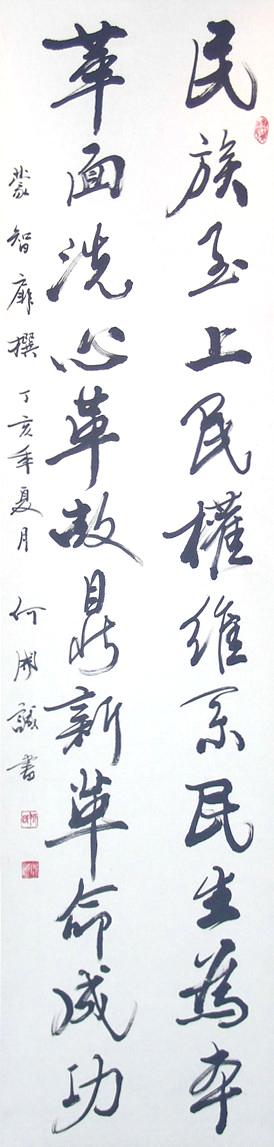 民族至上民權維系民生為本
革面洗心革故鼎新革命成功
蒙智扉撰丁亥年夏月何開誠書